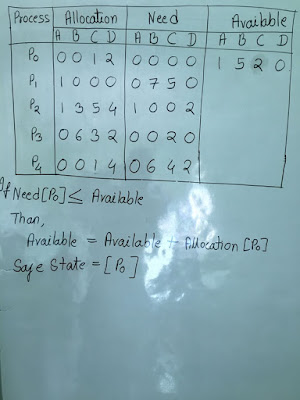 Process Allocation Need Available
A B C D A B C D A B C D
P0 0 0 1 2 0 0 0 0 1 5 2 0
P1 1 0 0 0 0 7 5 0
P2 1 3 5 4 1 0 0 2
P3 0 6 3 2 0 0 2 0
P4 0 0 1 4 0 6 4 2
If Need [P0] ≤ Available
Than,
Available = Available + Allocation [P0]
Safe State = [P0]